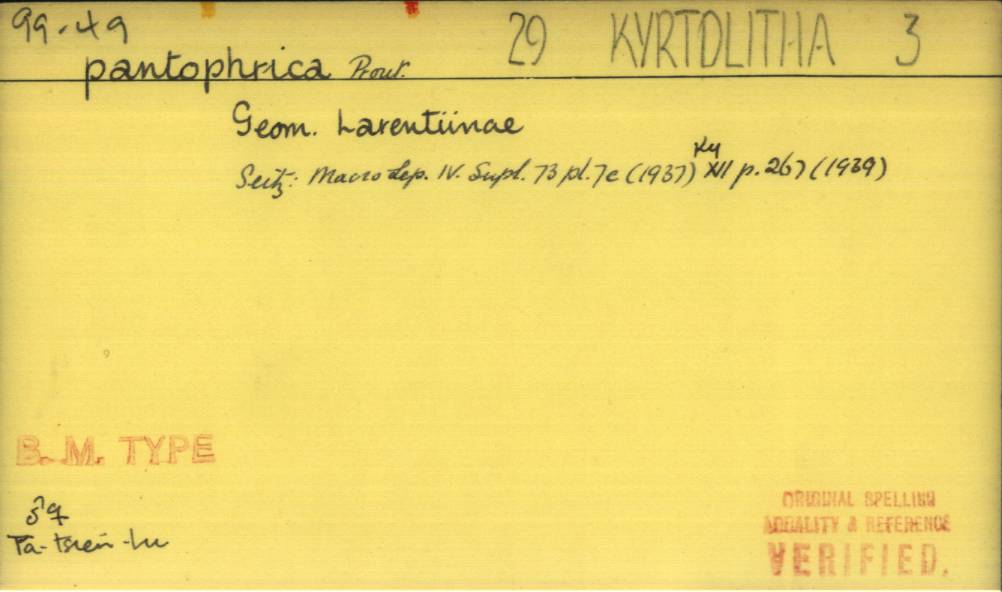 99.49
29 KYRTOLITHA 3
pantophrica Prout.
Geom. Larentiinae
Seitz: Macrolep. IV. Supl. 73 pl. 7e (1937) XII p. 267 (1939)
B. M. TYPE
♂♀
Ta-tsien-lu
ORIGINAL SPELLING
LOCALITY & REFERENCE
VERIFIED.